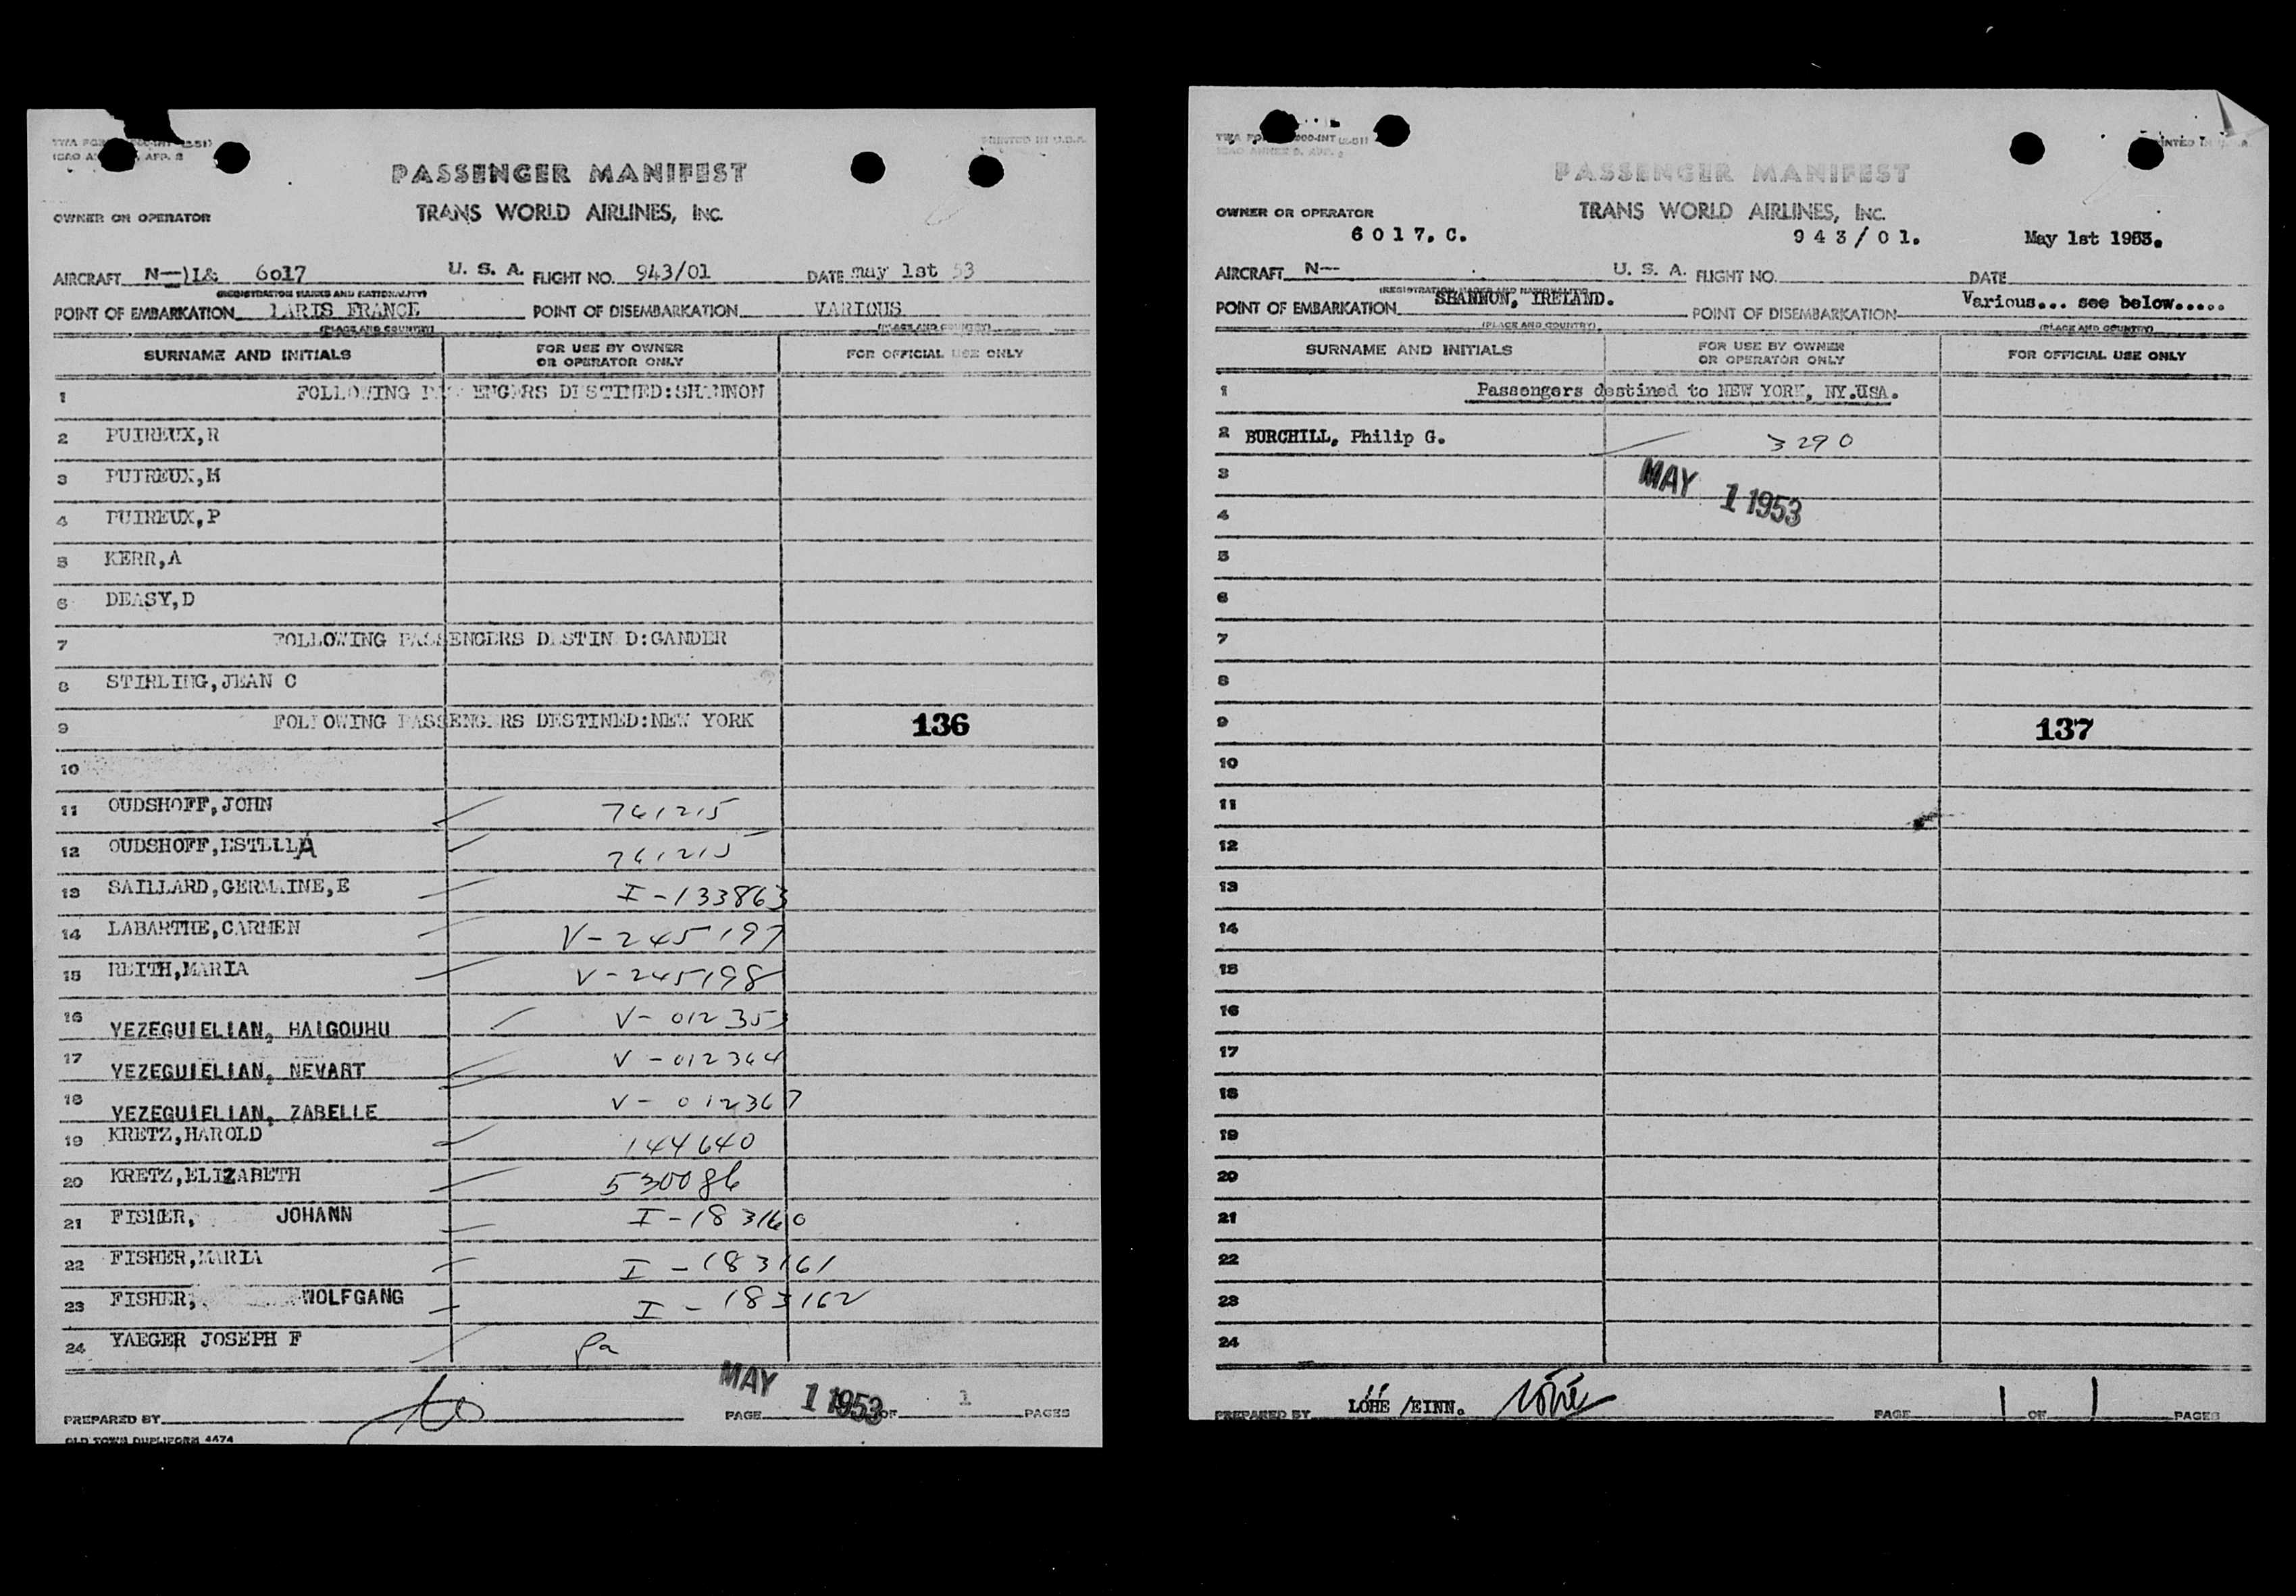 PASSENGER MANIFEST
TRANS WORLD AIRLINES, INC.
OWNER OR OPERATOR
AIRCRAFT 6017 U. S. A. FLIGHT NO. 943/01 DATE may 1st 53
(REGISTRATION MARKS AND NATIONALITY)
POINT OF EMBARKATION LARIS FRANCE POINT OF DISEMBARKATION VARIOUS
(PLACE AND COUNTRY) (PLACE AND COUNTRY)
SURNAME AND INITIALS FOR USE BY OWNER OR OPERATOR ONLY FOR OFFICIAL USE ONLY
1 FOLLOWING ENGERS DESTINED:SHANNON
2 PUIREUX,R
3 PUIREUX,M
4 PUIREUX,P
5 KERR,A
6 DEASY,D
7 FOLLOWING PASSENGERS DESTIN D:GANDER
8 STIRLING,JEAN C
9 FOLLOWING PASSENGERS DESTINED:NEW YORK 136
10
11 OUDSHOFF,JOHN 761215
12 OUDSHOFF,ESTELLA 761215
13 SAILLARD,GERMAINE,E I-133863
14 LABARTHE,CARMEN V-245197
15 REITH,MARIA V-245198
16 YEZEGUIELIAN, HAIGOUHU V-012353
17 YEZEGUIELIAN, NEVART V-012364
18 YEZEGUIELIAN, ZABELLE V-012367
19 KRETZ,HAROLD 144640
20 KRETZ,ELIZABETH 530086
21 FISHER, JOHANN I-183160
22 FISHER,MARIA I-183161
23 FISHER, WOLFGANG I-183162
24 YAEGER JOSEPH F
MAY 1 1953
PREPARED BY PAGE OF 1 PAGES
OLD TOWN DUPLIFORM 4474
PRINTED IN U.S.A.
PASSENGER MANIFEST
TRANS WORLD AIRLINES, INC.
OWNER OR OPERATOR
6017.C. 943/01. May 1st 1953.
AIRCRAFT N-- U. S. A. FLIGHT NO. DATE
(REGISTRATION MARKS AND NATIONALITY)
POINT OF EMBARKATION SHANNON, IRELAND. POINT OF DISEMBARKATION Various... see below.....
(PLACE AND COUNTRY) (PLACE AND COUNTRY)
SURNAME AND INITIALS FOR USE BY OWNER OR OPERATOR ONLY FOR OFFICIAL USE ONLY
1 Passengers destined to NEW YORK, NY.USA.
2 BURCHILL, Philip G. 3290
3 MAY 1 1953
4
5
6
7
8
9 137
10
11
12
13
14
15
16
17
18
19
20
21
22
23
24
PREPARED BY LÓHÉ /EINN. PAGE 1 OF 1 PAGES